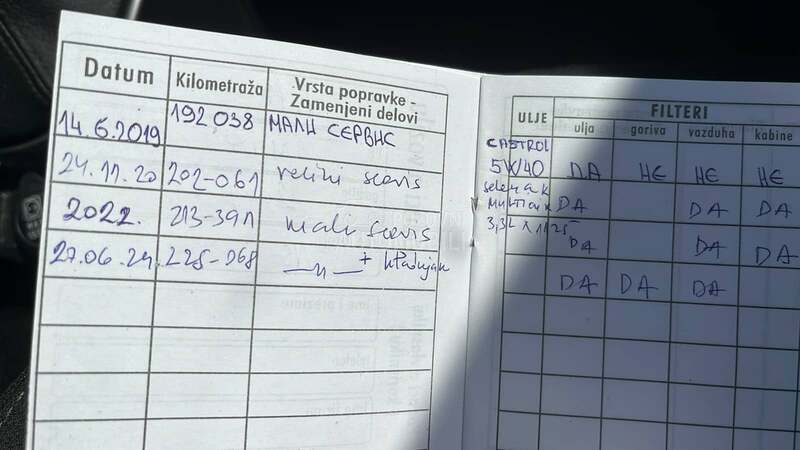 Datum Kilometraža Vrsta popravke -
Zamenjeni delovi
14.6.2019 192 038 МАЛИ СЕРВИС
24.11.20 202-061 veliki servis
2022. 213-391 mali servis
27.06.24. 228-068 —ıı— +
ULJE FILTERI
ulja goriva vazduha kabine
CASTROL
5W/40 DA НЕ НЕ НЕ
DA DA DA
DA DA DA
DA DA DA